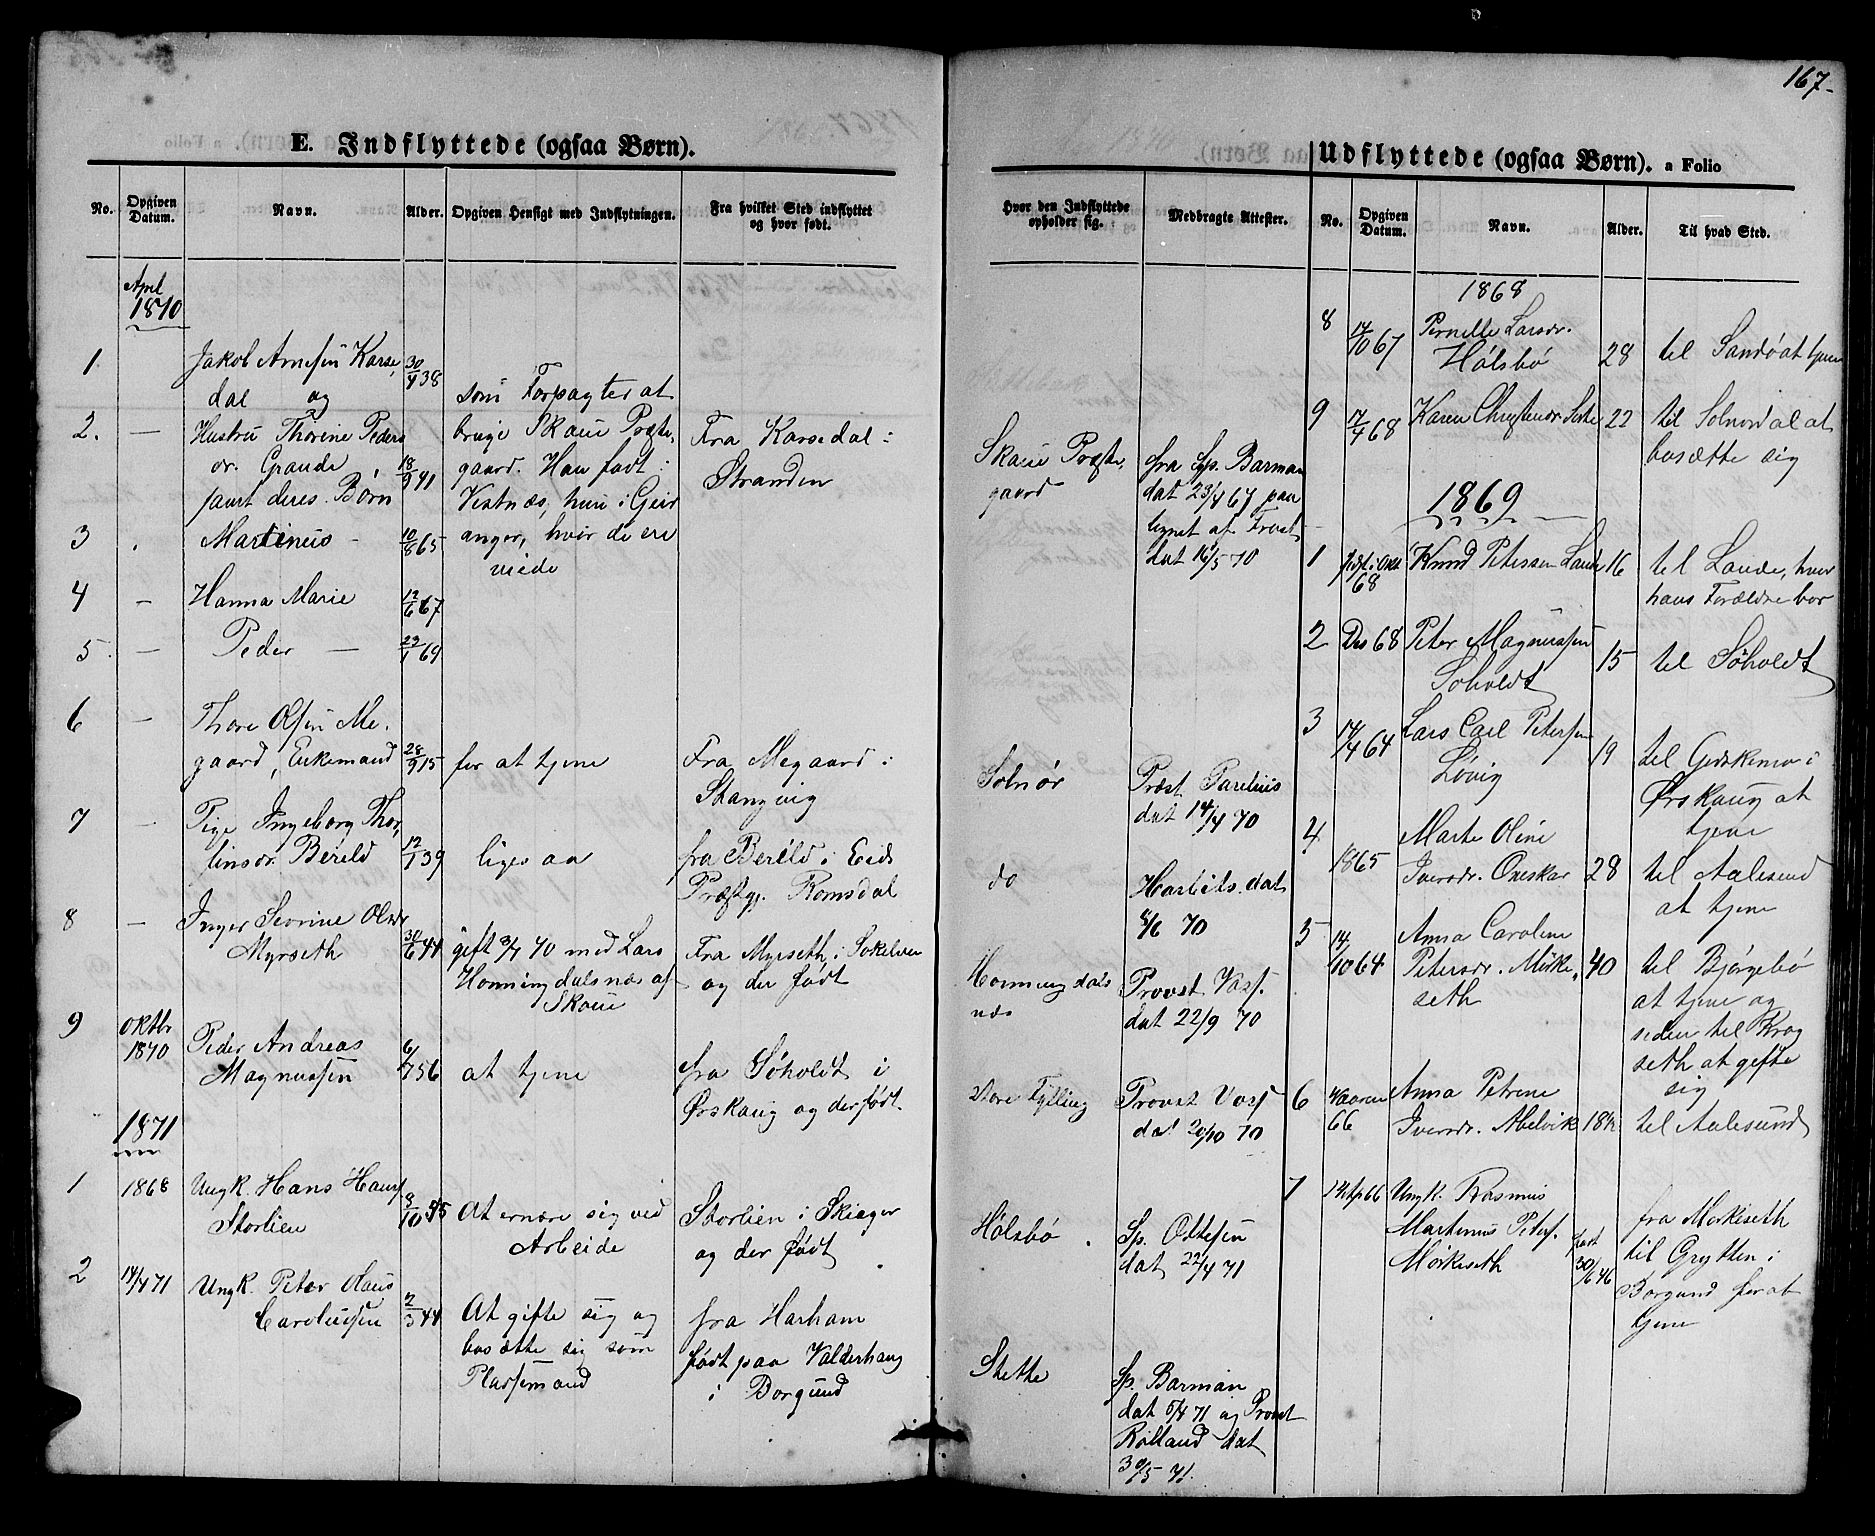 167.
E. Indflyttede (ogsaa Børn).
No.
Opgiven Datum.
Navn.
Alder.
Opgiven Hensigt med Indflytningen.
Fra hvilket Sted indflyttet
og hvor født.
April
1870
1
Jakob Arnesen Karse,
dal og
30/4 38
som Forpagter at
2. —
Hustru Thorine Peders
dr. Grande
18/9 41
samt deres Børn
bruge Skaue Præste,
gaard. Han født i
Vestnæs, hun i Geir
anger, hvor de ere
viede
Fra Karsedal i
Stranden
3
Martinus —
10/8 65
4 —
Hanna Marie
12/6 67
5. —
Peder —
23/1 69
6 —
Thore Olsen Me,
gaard, Enkemand
28/9 15
for at tjene
Fra Megaard i
Stangvig
7 —
Pige Ingeborg Thor,
linsdr. Bereld
12/1 39
ligesaa
fra Bereld i Eids
Præstgj. Romsdal
8 —
Inger Sevrine Olsdr
Myrseth
30/6 44
gift 3/7 70 med Lars
Honningdalsnæs af
Skaue
Fra Myrseth i Søkelven
og der født
9
Oktbr
1870
Peder Andreas
Magnussen
6/7 56
at tjene
fra Søholdt i
Ørskaug og der født.
1871
1
1868
Ungk. Hans Hans
Storlien
8/10 45
At ernære sig ved
Arbeide
Storlien i Skiager
og der født
2
14/4 71
Ungk. Peter Olaus
Carolussen
2/3 44
At gifte sig og
bosætte sig som
Pladsemand
fra Harham
født paa Valderhaug
i Borgund
Hvor den Indflyttede
opholder sig.
Medbragte Attester.
Skaue Præste,
gaard
fra Sp. Barman
dat 23/4 67 paa
tegnet af Provst
dat 16/5 70
Solnør
Præst Parelius
dat 14/4 70
do
dat
8/6 70
Honningdals
næs
Provst Vosf.
dat 22/9 70
Store Fylling
Provst Vosf
dat 20/10 70
Hølsbø
Sp. Ottesen
dat 22/4 71
Stette
Sp. Barman
dat 5/4 71 og Provst
Rolland dat
30/5 71.
Udflyttede (ogsaa Børn). a Folio
No.
Opgiven
Datum.
Navn.
Alder.
Til hvad Sted.
1868
8
14/10 67
Pernelle Larsdr.
Hølsbø
28
til Sandø at tjene
9
12/4 68
Karen Christensdr Stette
22
til Solnørdal at
bosætte sig
1869
1
68
Knud Petersen Lande
16
til Lande, hvor
hans Forældre bor
2
Des 68
Peter Magnussen
Søholdt
15
til Søholdt
3
14/4 64
Lars Carl Petersen
Løvig
19
til Gjeskemo i
Ørskaug at
tjene
4
1865
Marte Oline
Iversdr. Oneskar
28
til Aalesund
at tjene
5
14/10 64
Anna Caroline
Petersdr. Mørke,
seth
40
til Bjørgebø
at tjene og
siden til Krog
seth at gifte
sig
6
Vaaren
66
Anna Petrine
Iversdr. Abelvik
18½
til Aalesund
7
14 Ap 66
Ungk. Rasmus
Martinus Peters.
Mørkeseth
født
30/6 46
fra Mørkeseth
til Grytten i
Borgund for at
tjene